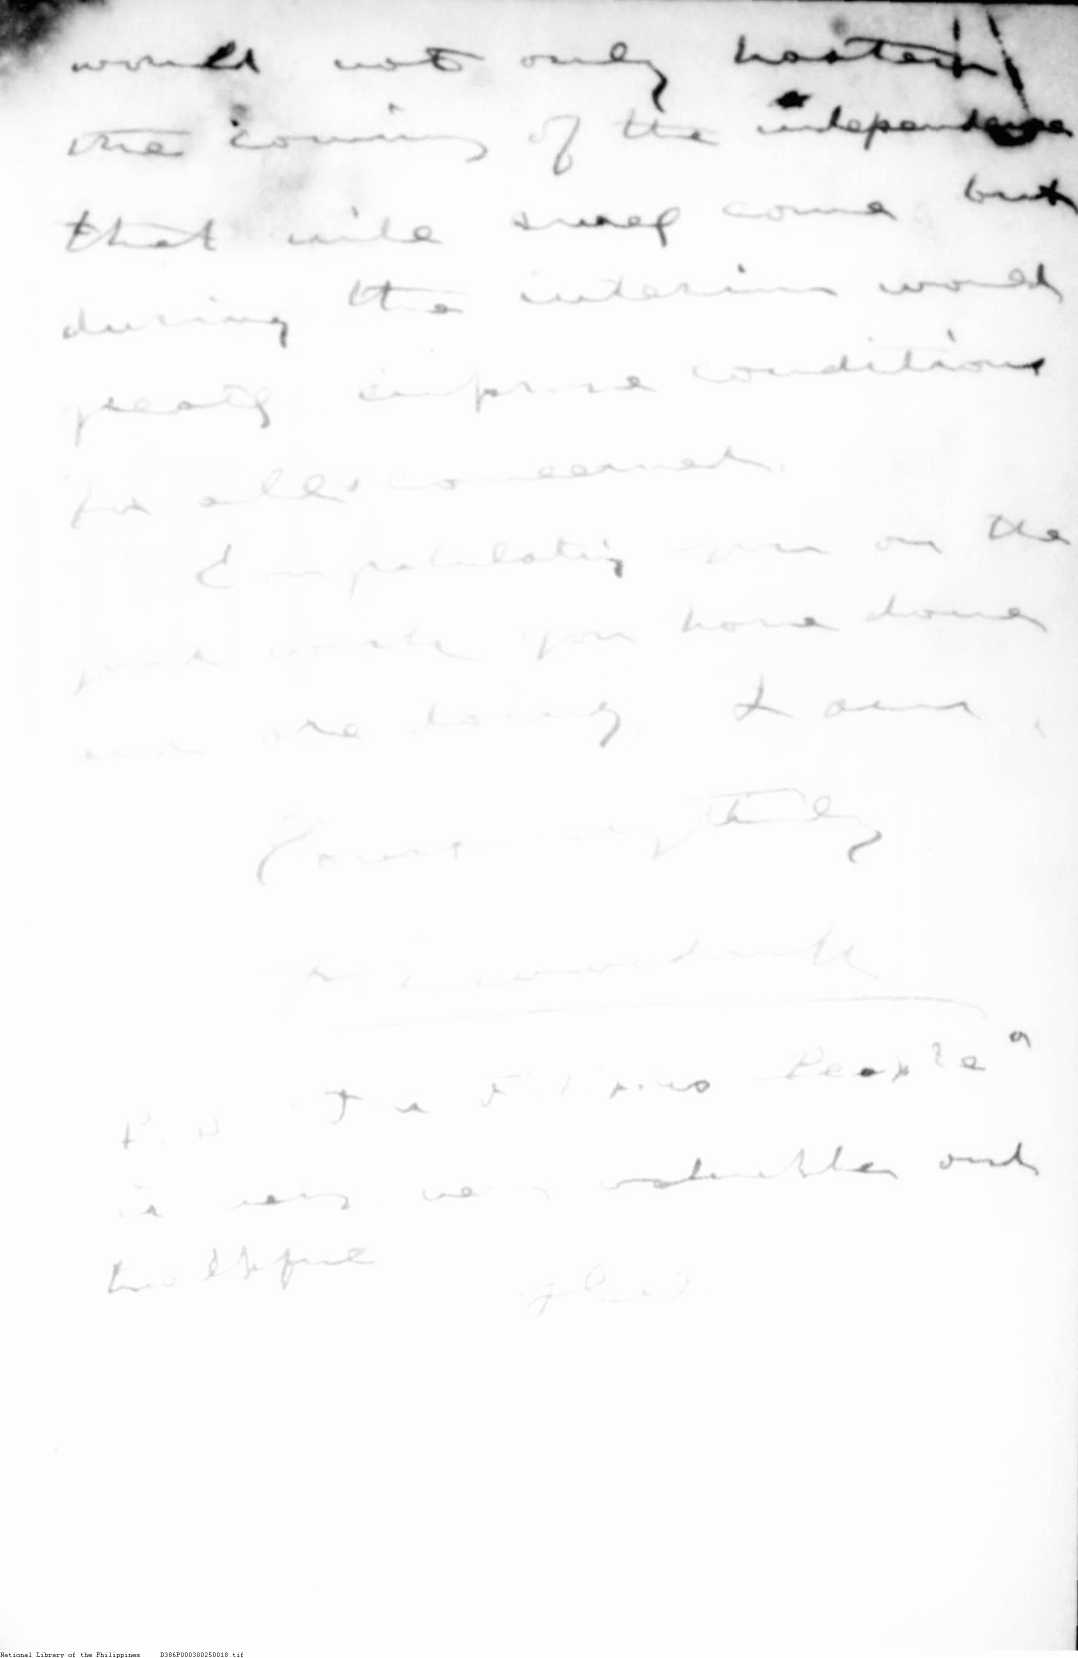 would not only hasten
the coming of the independence
that will surely come but
during the interim would
greatly improve conditions
for all concerned.
Congratulating you on the
good work you have done
and are doing I am,
Yours very truly
P.S. The Filipino People"
is very very valuable and
helpful
National Library of the Philippines D386P000380250018.tif